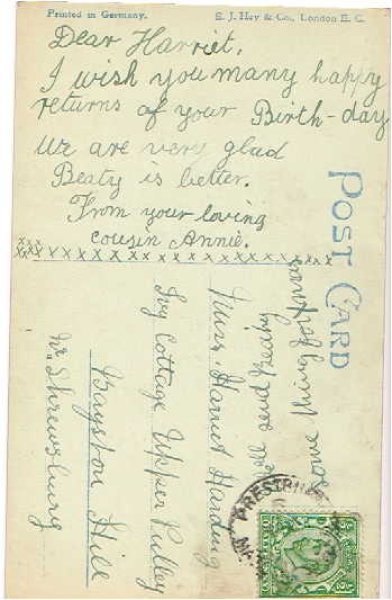 Printed in Germany.
S. J. Hey & Co., London E. C.
Dear Harriet,
I wish you many happy
returns of your Birth-day
We are very glad
Beaty is better.
From your loving
cousin Annie.
xxx
xxxxxxxxxxxxxxxxxxxxxxx
POST CARD
some
will send
Miss Harriet Harding
Ivy Cottage Upper Pulley
Bayston Hill
Nr. Shrewsbury
PRESTBU